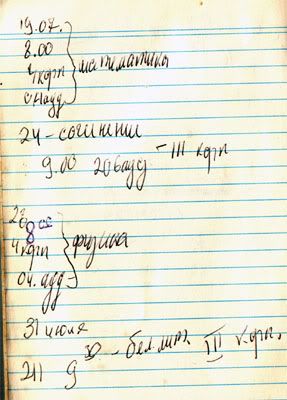 19.07.
8.00
4 корп } математика
ауд
24 - сочинение
9.00 206 ауд - III корп
8 00
4 корп } физика
04. ауд
31 июля
211 9 30 - бел. лит. III корп.